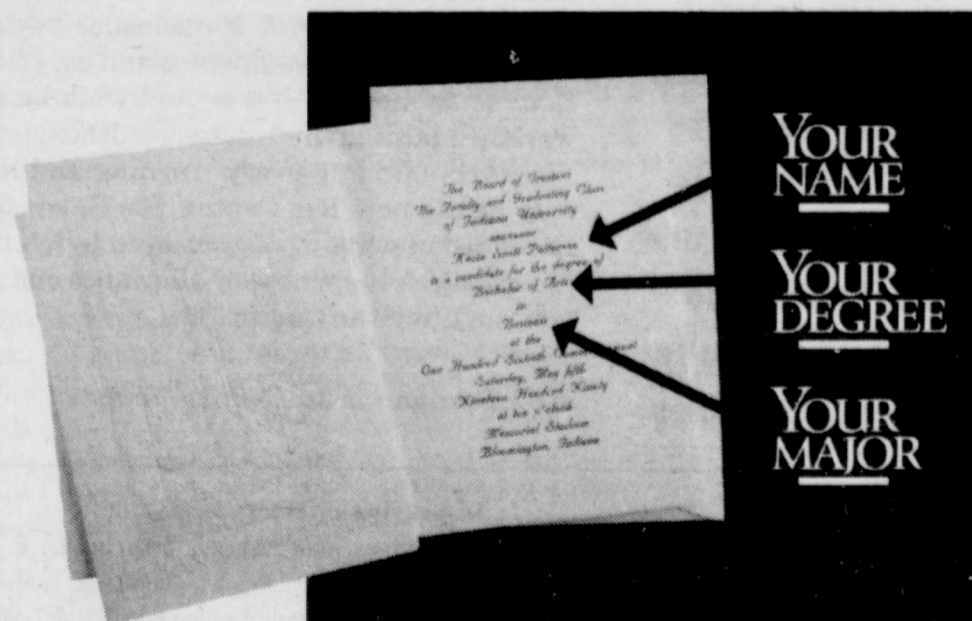 The Board of Trustees
The Faculty and Graduating Class
of Indiana University
announce
Kevin Scott Patterson
is a candidate for the degree of
Bachelor of Arts
in
Business
at the
One Hundred Sixtieth Commencement
Saturday, May fifth
Nineteen Hundred Ninety
at ten o'clock
Memorial Stadium
Bloomington, Indiana
YOUR
NAME
YOUR
DEGREE
YOUR
MAJOR